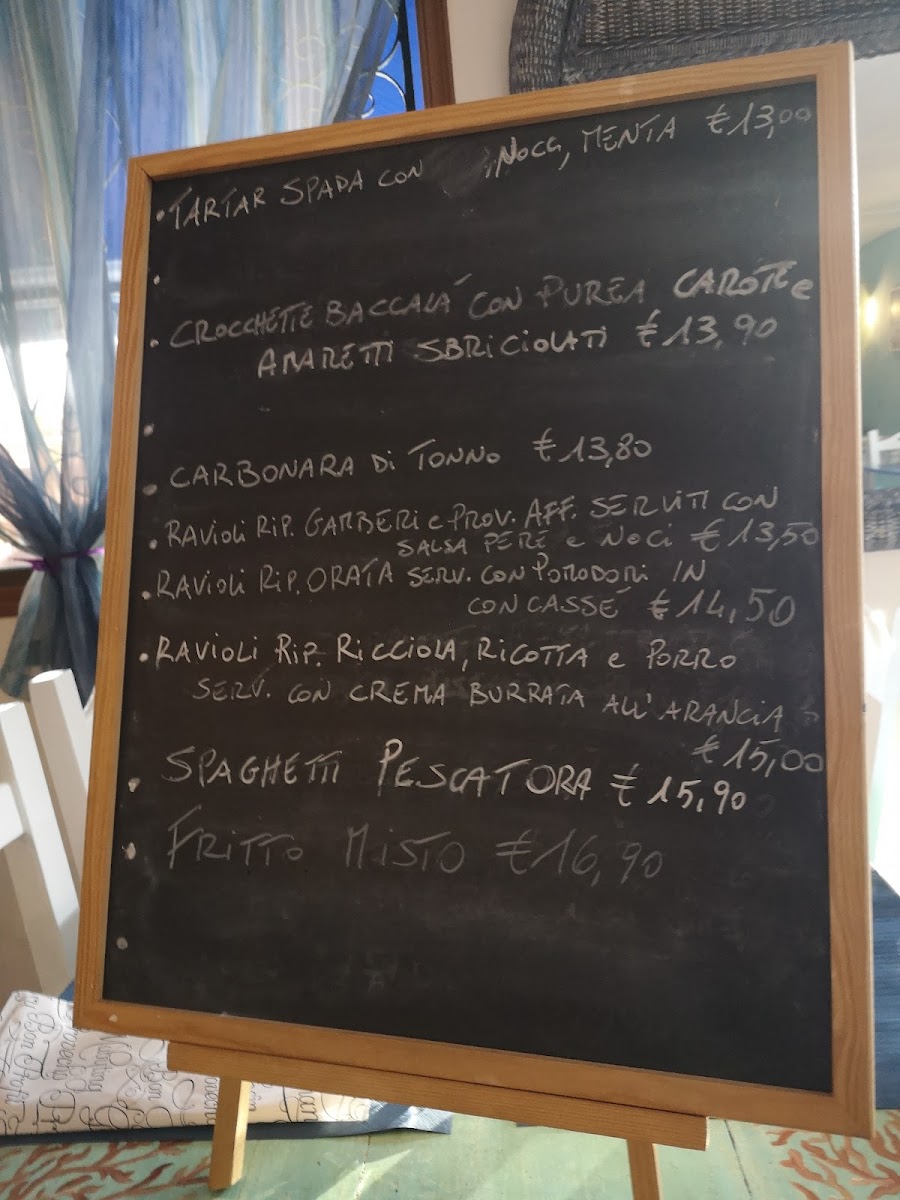 • TARTAR SPADA CON , NOCC, MENTA €13,00
• CROCCHETTE BACCALA´ CON PUREA CAROTE e
AMARETTI SBRICIOLATI €13,90
• CARBONARA Di TONNO €13,80
• RAVIOLI RIP. GAMBERI e PROV. AFF. SERVITI CON
SALSA PERE e NOCI €13,50
• RAVIOLI RIP. ORATA SERV. CON POMODORI IN
CONCASSE´ €14,50
• RAVIOLI RIP. RICCIOLA, RICOTTA e PORRO
SERV. CON CREMA BURRATA ALL'ARANCIA
€15,00
• SPAGHETTI PESCATORA €15,90
• FRITTO MISTO €16,90